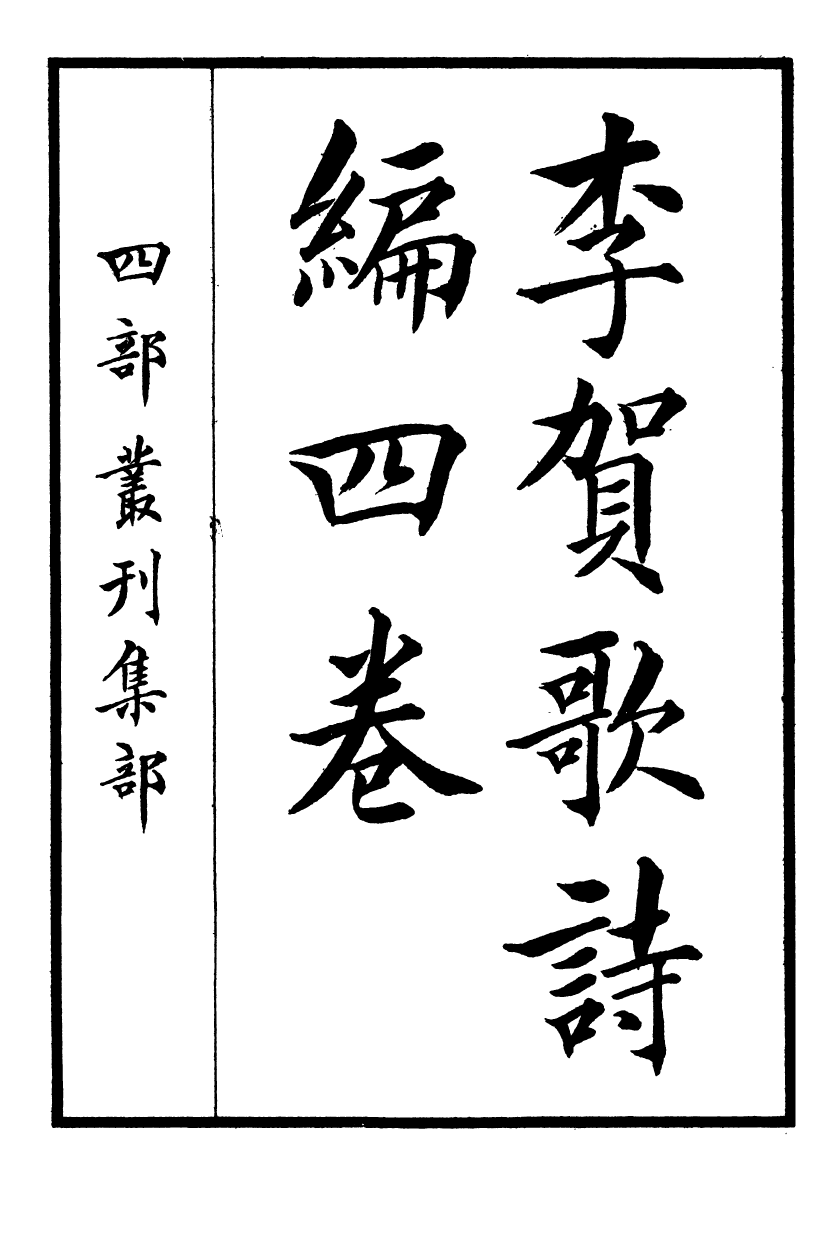 李賀歌詩
編四卷
四部叢刊集部